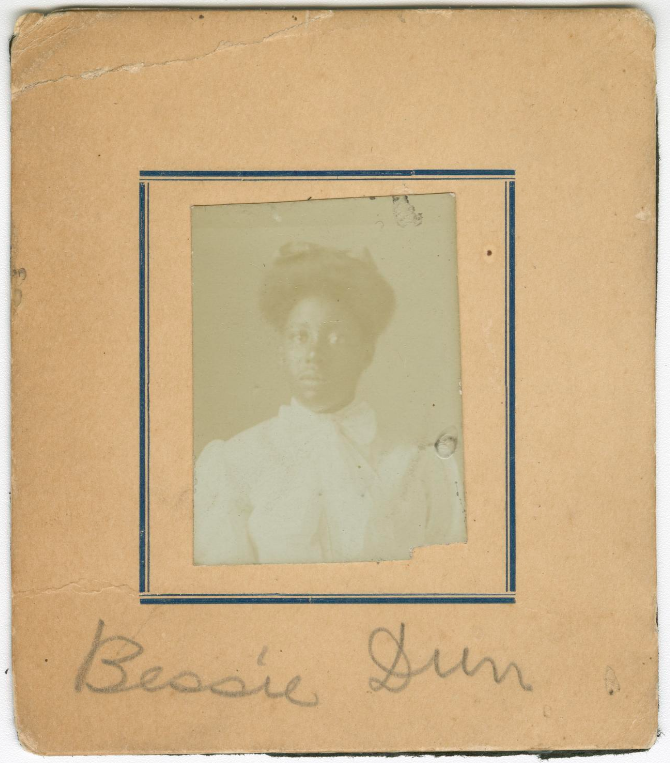 Bessie Dunn